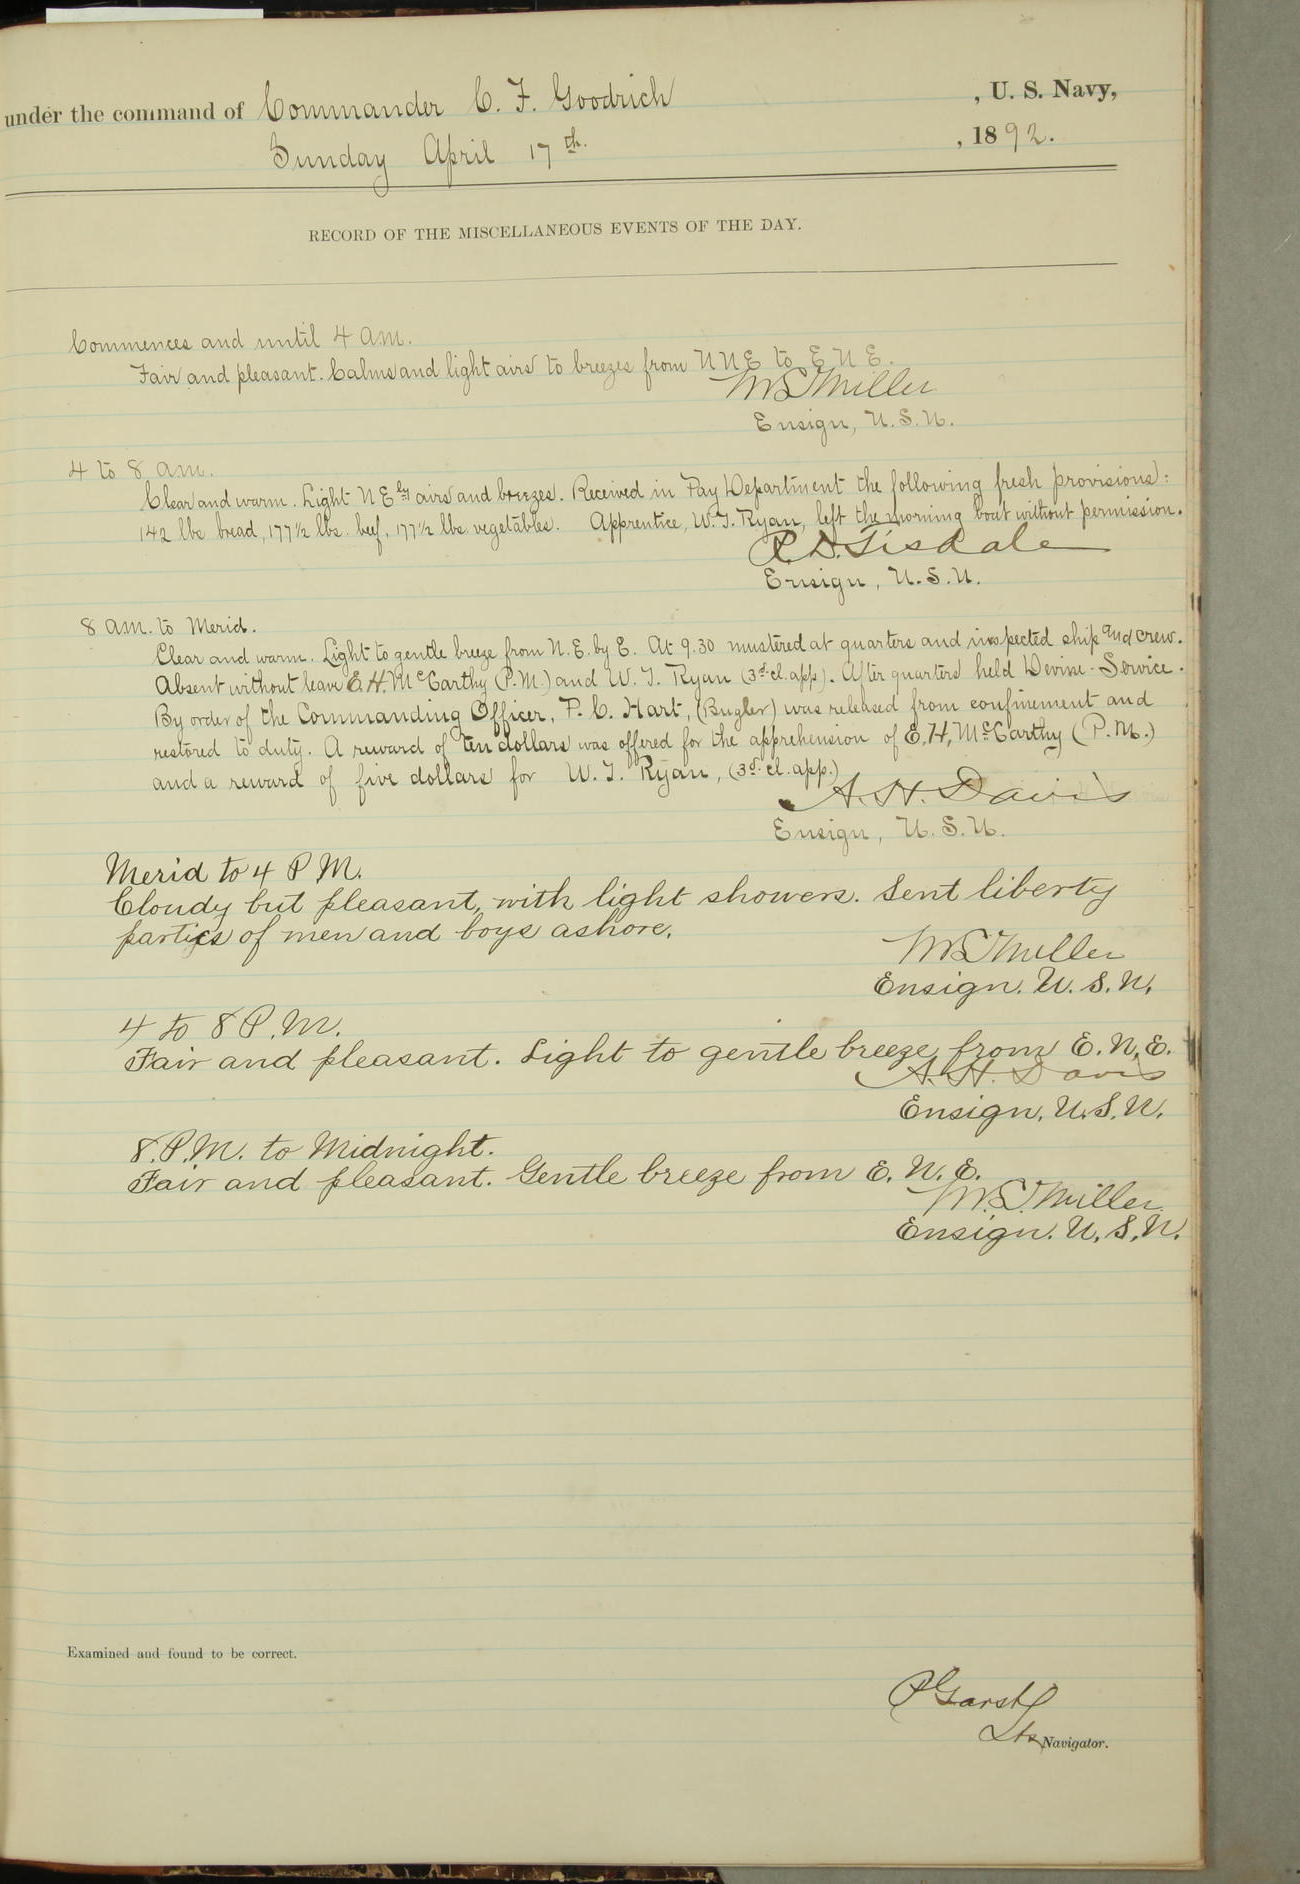 under the command of Commander C. F. Goodrich , U. S. Navy,
Sunday April 17th. , 1892.
RECORD OF THE MISCELLANEOUS EVENTS OF THE DAY.
Commences and until 4 am.
Fair and pleasant. Calms and light airs to breezes from NNE to ENE.
M S Miller
Ensign, U.S.N.
4 to 8 am.
Clear and warm. Light NEly airs and breezes. Received in Pay Department the following fresh provisions:
142 lbs bread, 177½ lbs. beef, 177½ lbs vegetables. Apprentice, W. J. Ryan, left the morning boat without permission.
R. D. Tisdale
Ensign, U.S.N.
8 am. to Merid.
Clear and warm. Light to gentle breeze from N.E. by E. At 9.30 mustered at quarters and inspected ship and crew.
Absent without leave E.H. McCarthy (P.M.) and W. J. Ryan (3d. cl. app). After quarters held Devine-Service.
By order of the Commanding Officer, P. C. Hart, (Bugler) was released from confinement and
restored to duty. A reward of ten dollars was offered for the apprehension of E.H. McCarthy (P.M.)
and a reward of five dollars for W. J. Ryan, (3d. cl. app.)
A. H. Davis
Ensign, U.S.N.
Merid to 4 P M.
Cloudy but pleasant, with light showers. Sent liberty
parties of men and boys ashore.
M S Miller
Ensign. U. S. N.
4 to 8 P.M.
Fair and pleasant. Light to gentle breeze from E. N. E.
A. H. Davis
Ensign, U.S.N.
8. P.M. to Midnight.
Fair and pleasant. Gentle breeze from E. N. E.
M. S. Miller
Ensign. U. S. N.
Examined and found to be correct.
P Garst
Lt Navigator.